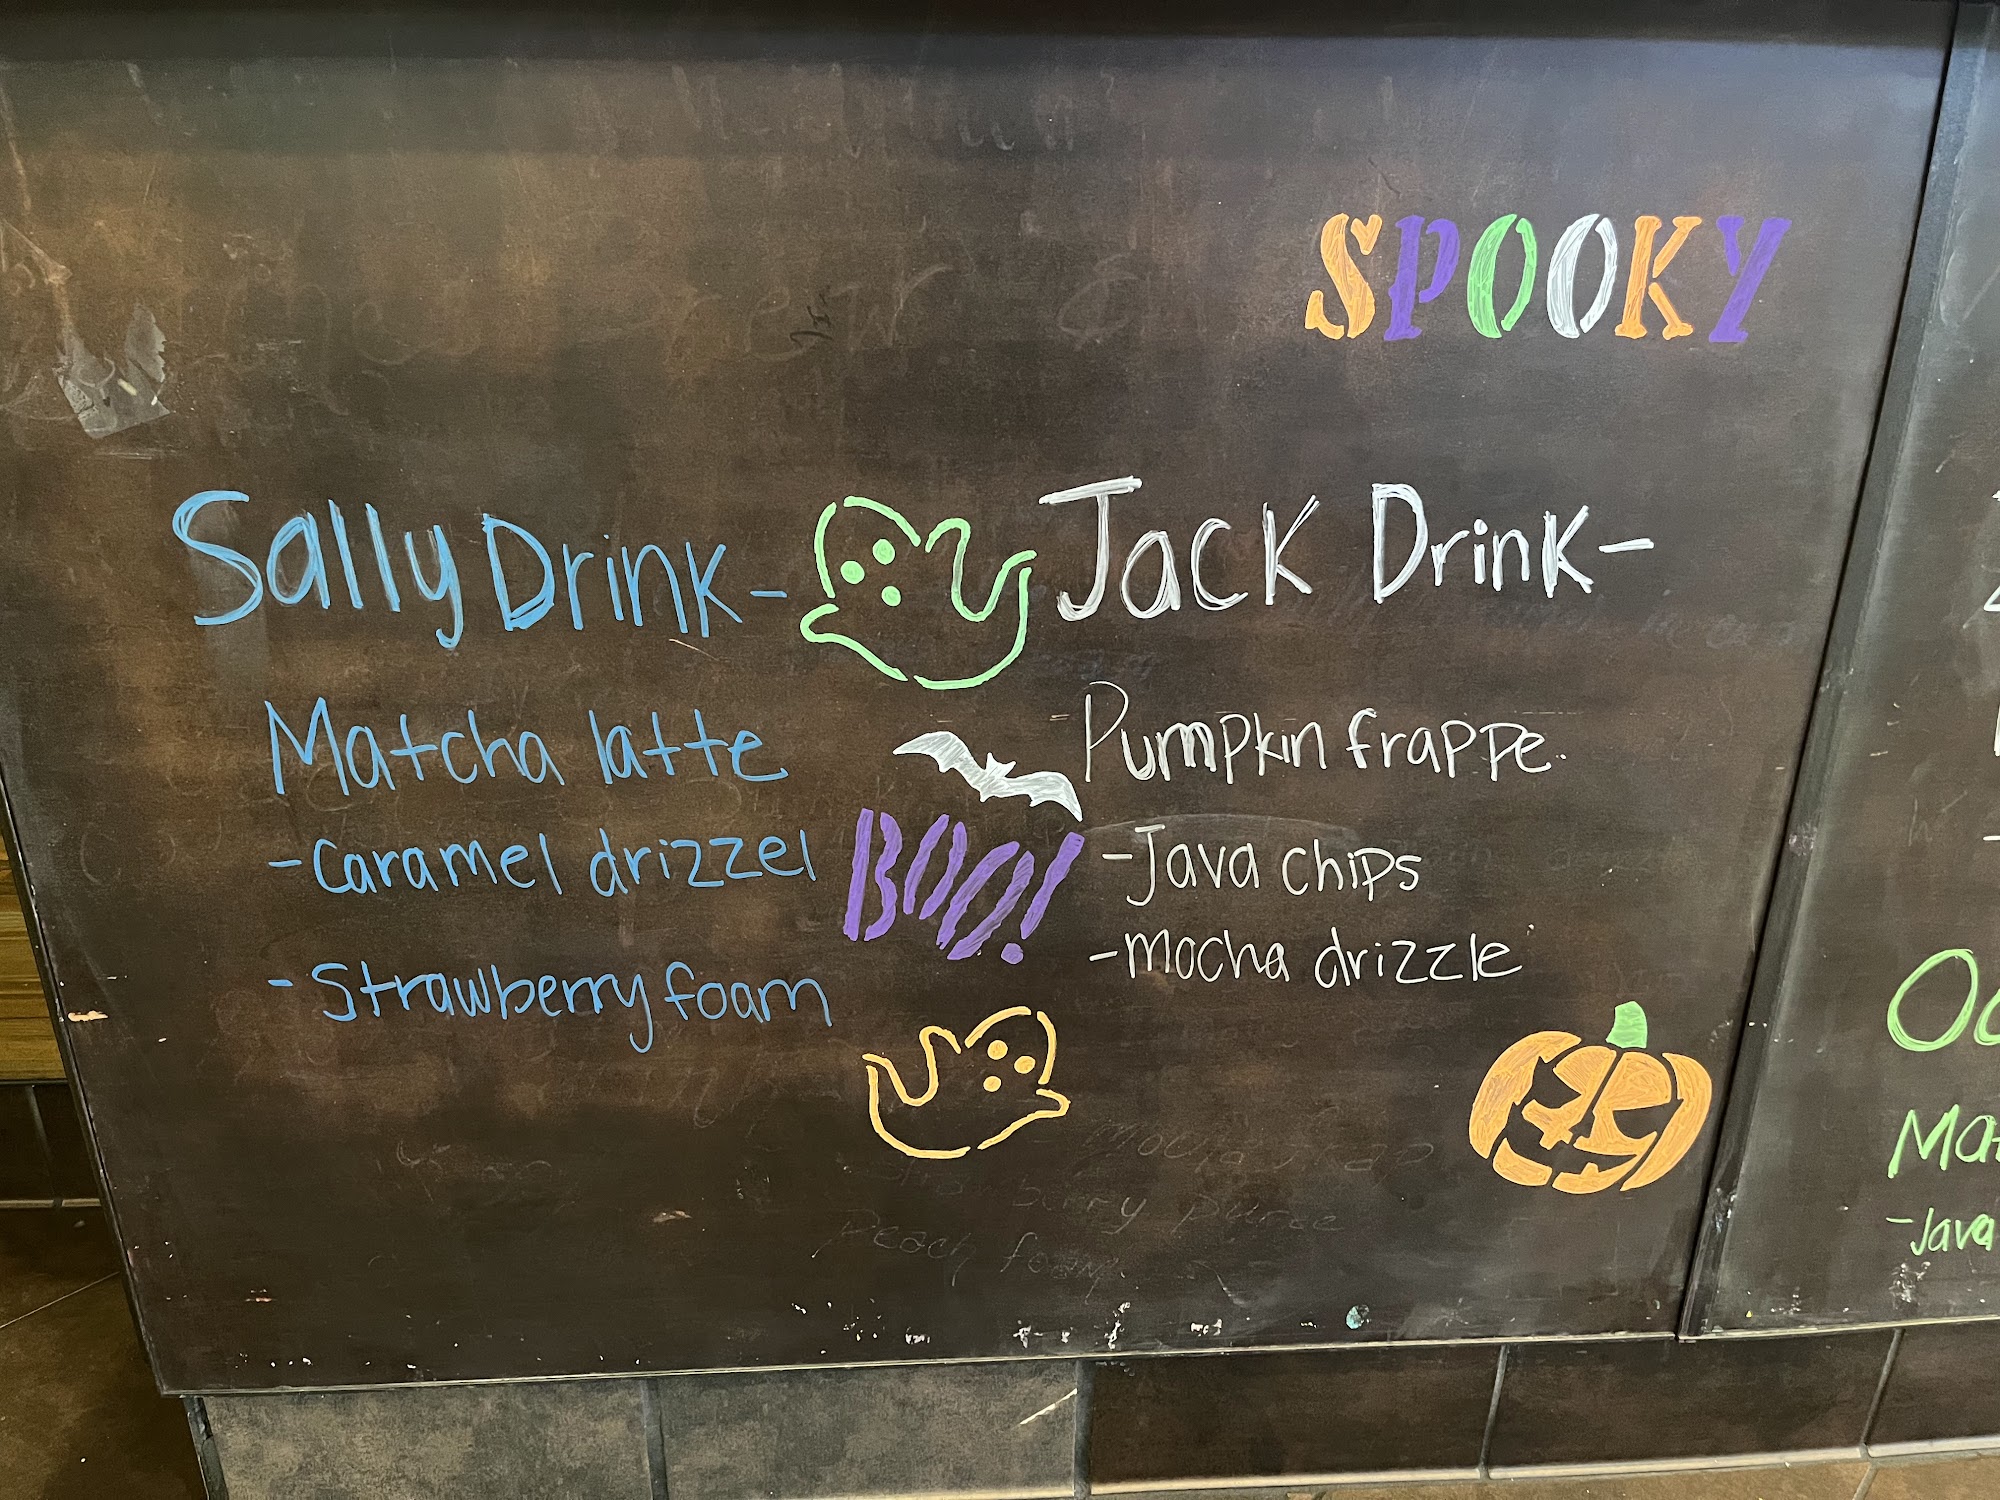 SPOOKY
Sally Drink -
Matcha latte
- Caramel drizzel
- Strawberry foam
BOO!
Jack Drink -
Pumpkin frappe.
- Java chips
- Mocha drizzle
mocha frap
berry puree
peach foam
- Java